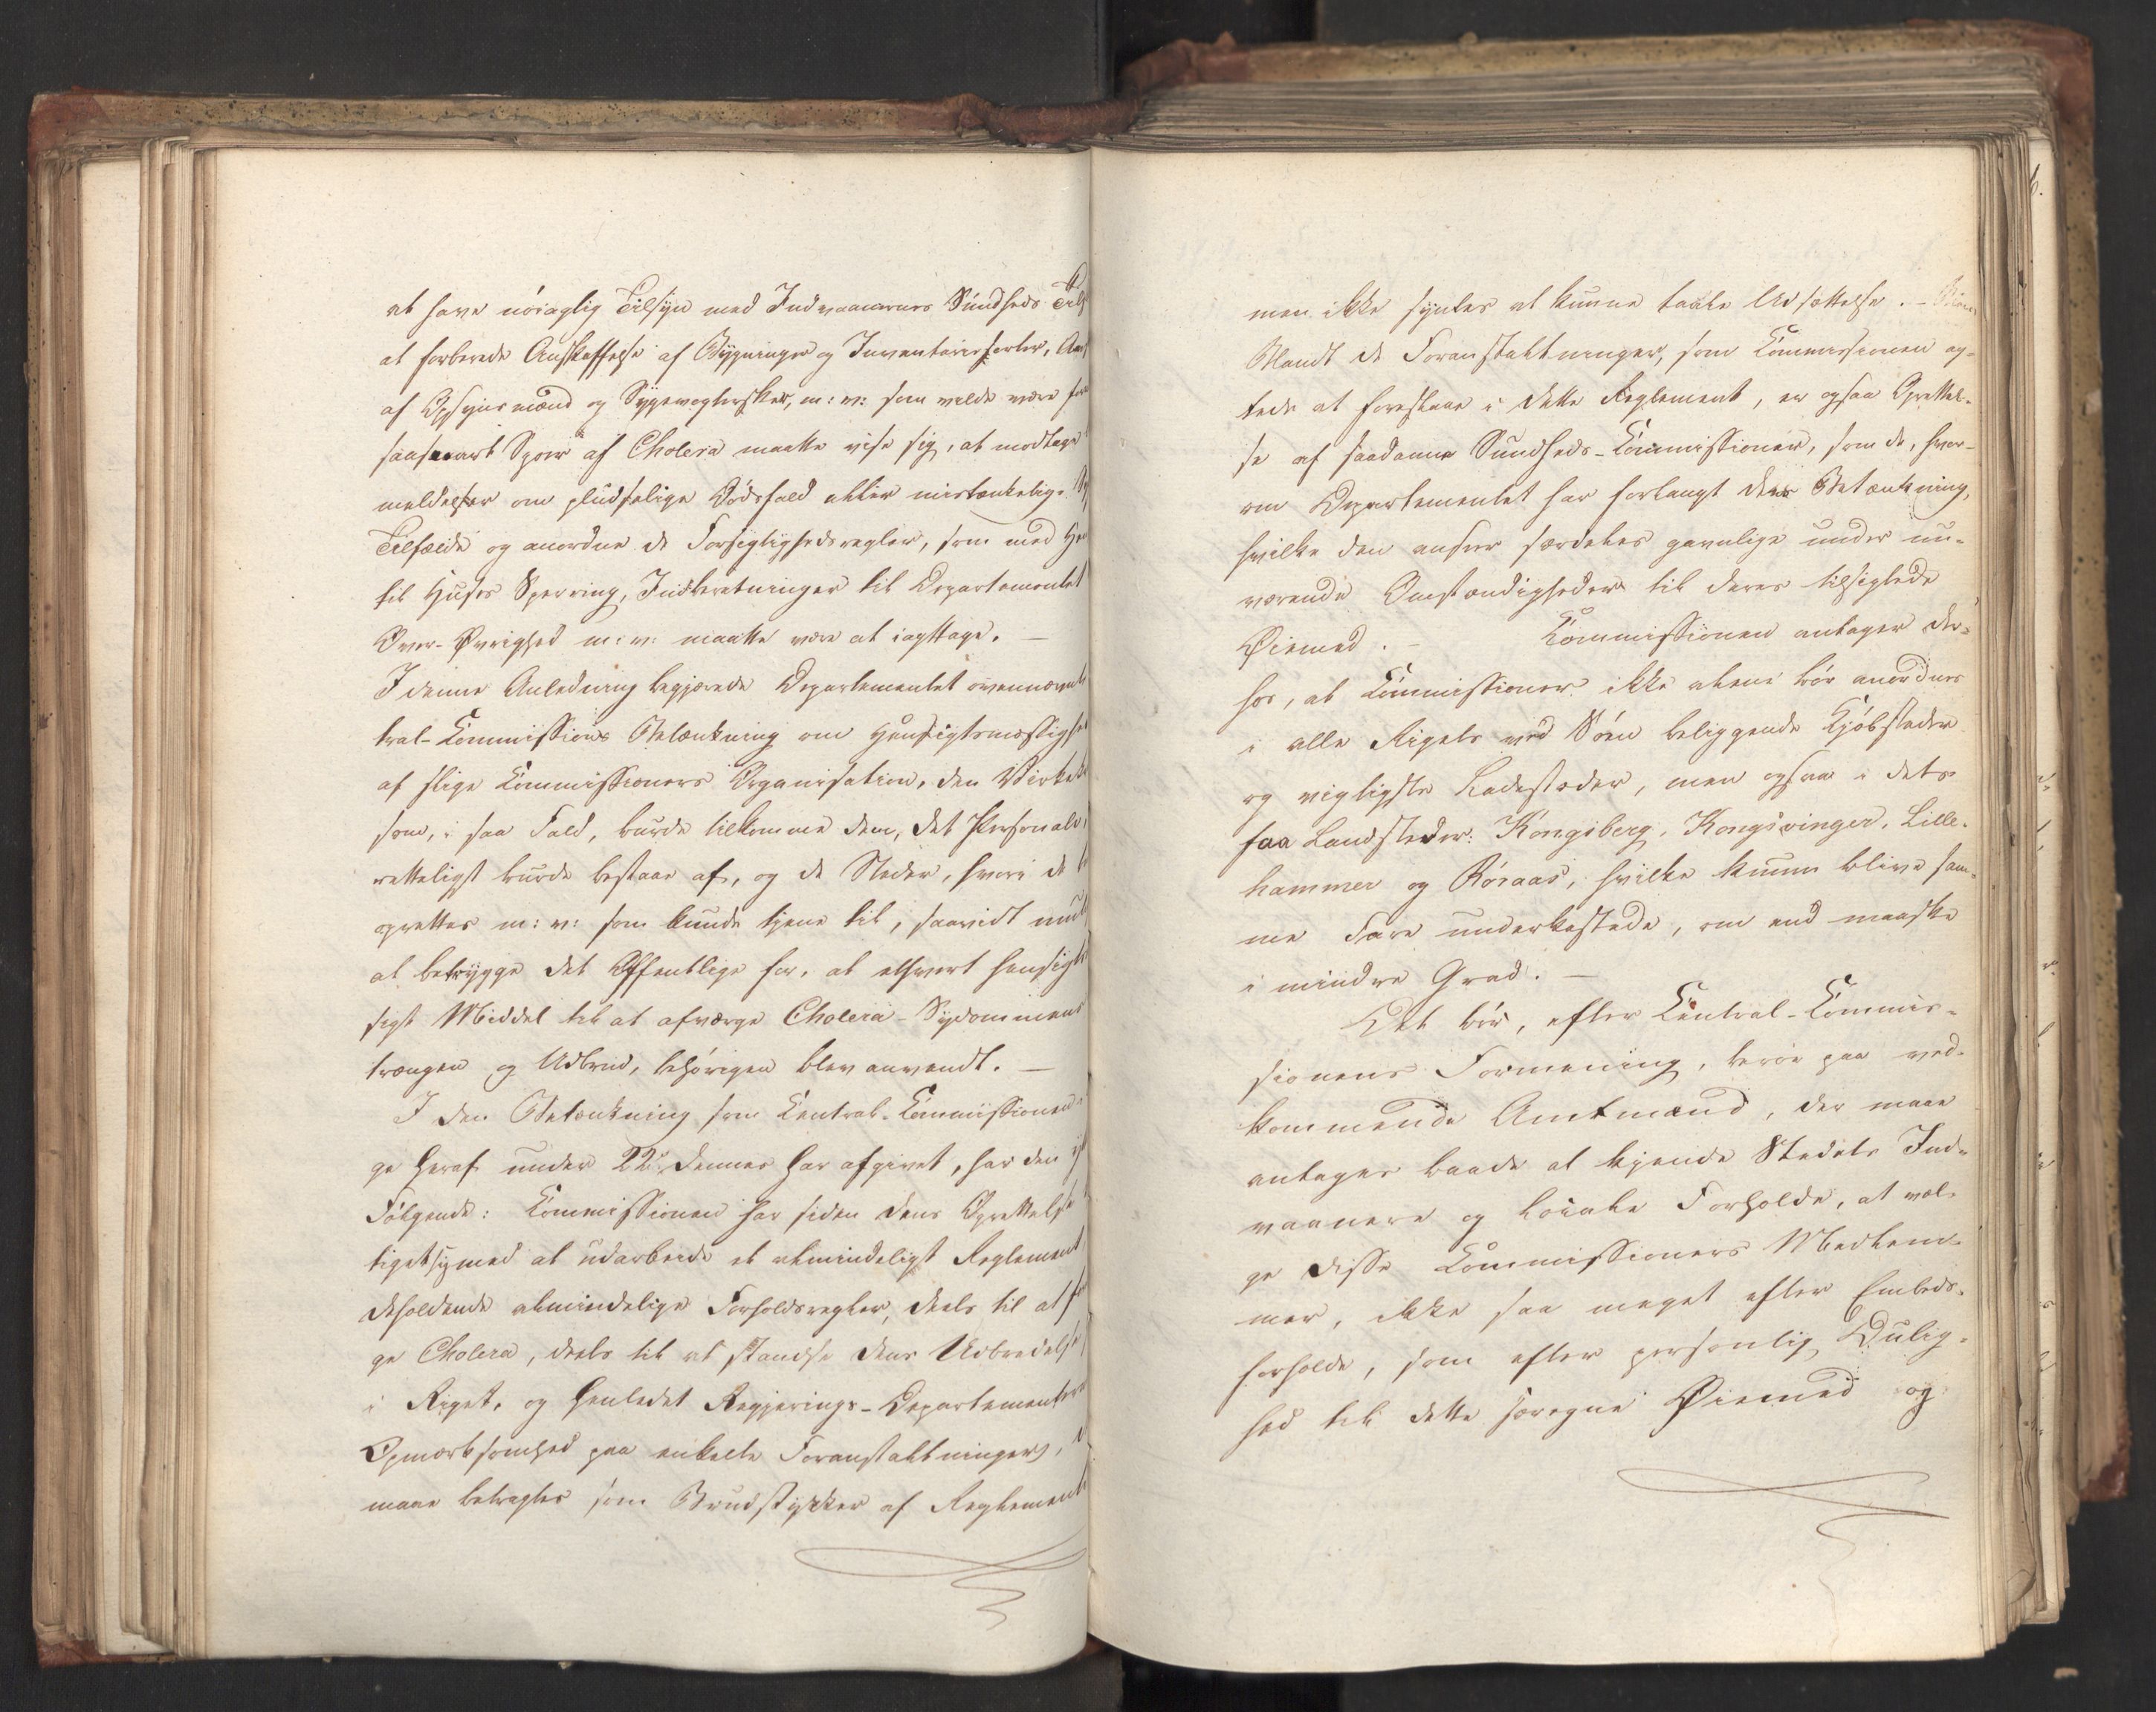 at have nöiagtig Tilsyn med Indvaanernes Sundheds Til
at forberede Anskaffelse af Bygninger og Inventariesorter,
af Opsynsmænd og Sygevogtersker, m: v: som vilde være
saasnart Spoer af Cholera maatte vise sig, at modtage
meldelser om pludselige Dödsfald eller mistænkelige
Tilfælde og anordne de Forsigtighedsregler, som med
til Huses Sperring, Indberetninger til Departementet
Over-Øvrighed m: v: maatte være at iagttage. —
I denne Anledning begjærede Departementet ovennævnte
tral-Commissions Betænkning om Hensigtsmæssighed
af slige Commissioners Organisation, den Virkek
som, i saa Fald, burde tilkomme dem, det Personale,
retteligst burde bestaae af, og de Steder, hvori de
oprettes m: v: som kunde tjene til, saavidt mul
at betrygge det Offentlige for, at ethvert hensigts
sigt Middel til at afværge Cholera-Sygdommens
trængen og Udbrud, behörigen blev anvendt. —
I den Betænkning som Central-Commissionen i
ge heraf under 22de dennes har afgivet, har den
Følgende: Commissionen har siden dens Oprettelse
tiget sig med at udarbeide et almindeligt Reglement,
deholdende almindelige Forholdsregler, deels til at
ge Cholera, deels til at standse dens Udbredelse
i Riget, og henledet Regjerings-Departementere
Opmærksomhed paa enkelte Foranstaltninger,
maae betragtes som Brudstykker af Reglement
men ikke syntes at kunne taale Udsættelse. —
Blandt de Foranstaltninger, som Commissionen ag-
tede at foreslaae i dette Reglement, er ogsaa Oprettel-
se af saadanne Sundheds-Commissioner, som de, hvor-
om Departementet har forlangt dens Betænkning,
hvilke den anseer særdeles gavnlige under nu-
værende Omstændigheder til deres tilsigtede
Øiemed. — Commissionen antager der-
hos, at Commissioner ikke alene bör anordnes
i alle Rigets ved Söen beliggende Kjöbstæder
og vigtigste Ladesteder, men ogsaa i dets
faa Landstæder: Kongsberg, Kongsvinger, Lille-
hammer og Röraas, hvilke kunne blive sam-
me Fare underkastede, om end maaske
i mindre Grad. —
Det bör, efter Central-Commis-
sionens Formening, beroe paa ved-
kommende Amtmænd, der maae
antages baade at kjende Stedets Ind-
vaanere og locale Forholde, at væl-
ge disse Commissioners Medlem-
mer, ikke saa meget efter Embeds-
forholde, som efter personlig Dulig-
hed til dette særegne Øiemed og